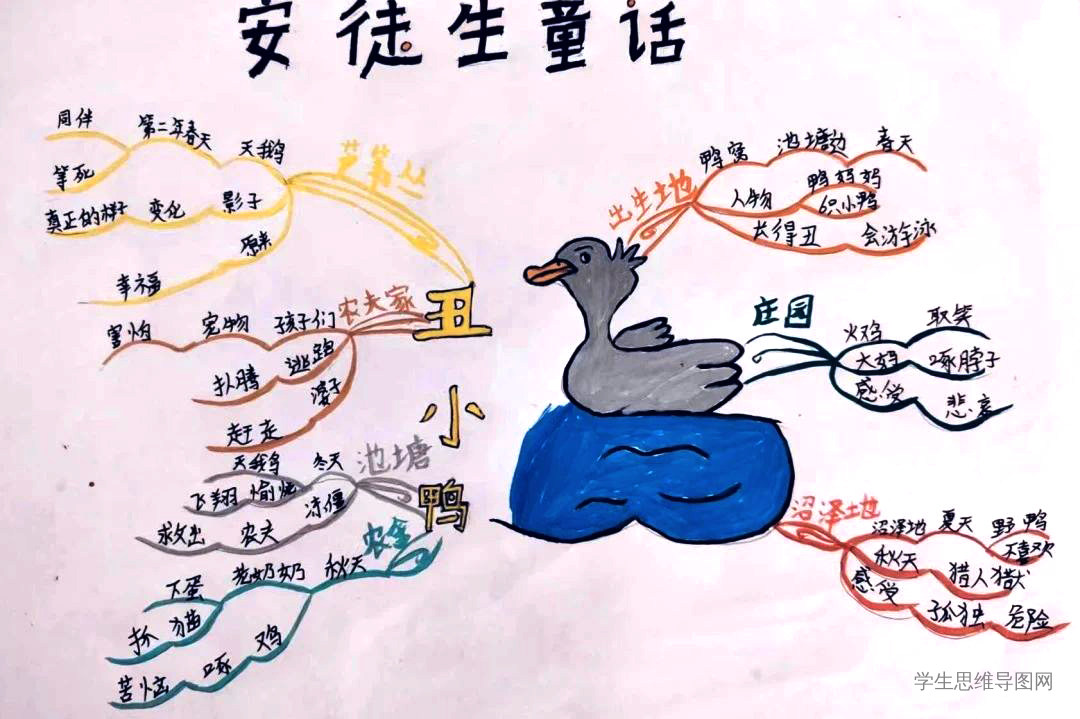 安徒生童话
丑小鸭
出生土地
鸭窝 池塘边 春天
人物 鸭妈妈
6只小鸭
长得丑 会游泳
庄园
火鸡 取笑
大妈 啄脖子
感受 悲哀
沼泽土地
沼泽地 夏天 野鸭
不喜欢
秋天 猎人猎犬
感受 孤独 危险
农舍
秋天 老奶奶 下蛋
猫 抓
鸡 啄 苦恼
池塘
冬天 天鹅
愉悦 飞翔
冻僵 农夫 救出
农夫家
孩子们 宠物 害怕
逃跑 扑腾
妻子 赶走
芦苇丛
天鹅 第二年春天 同伴
等死
影子 变化 真正的样子
原来 幸福
学生思维导图网